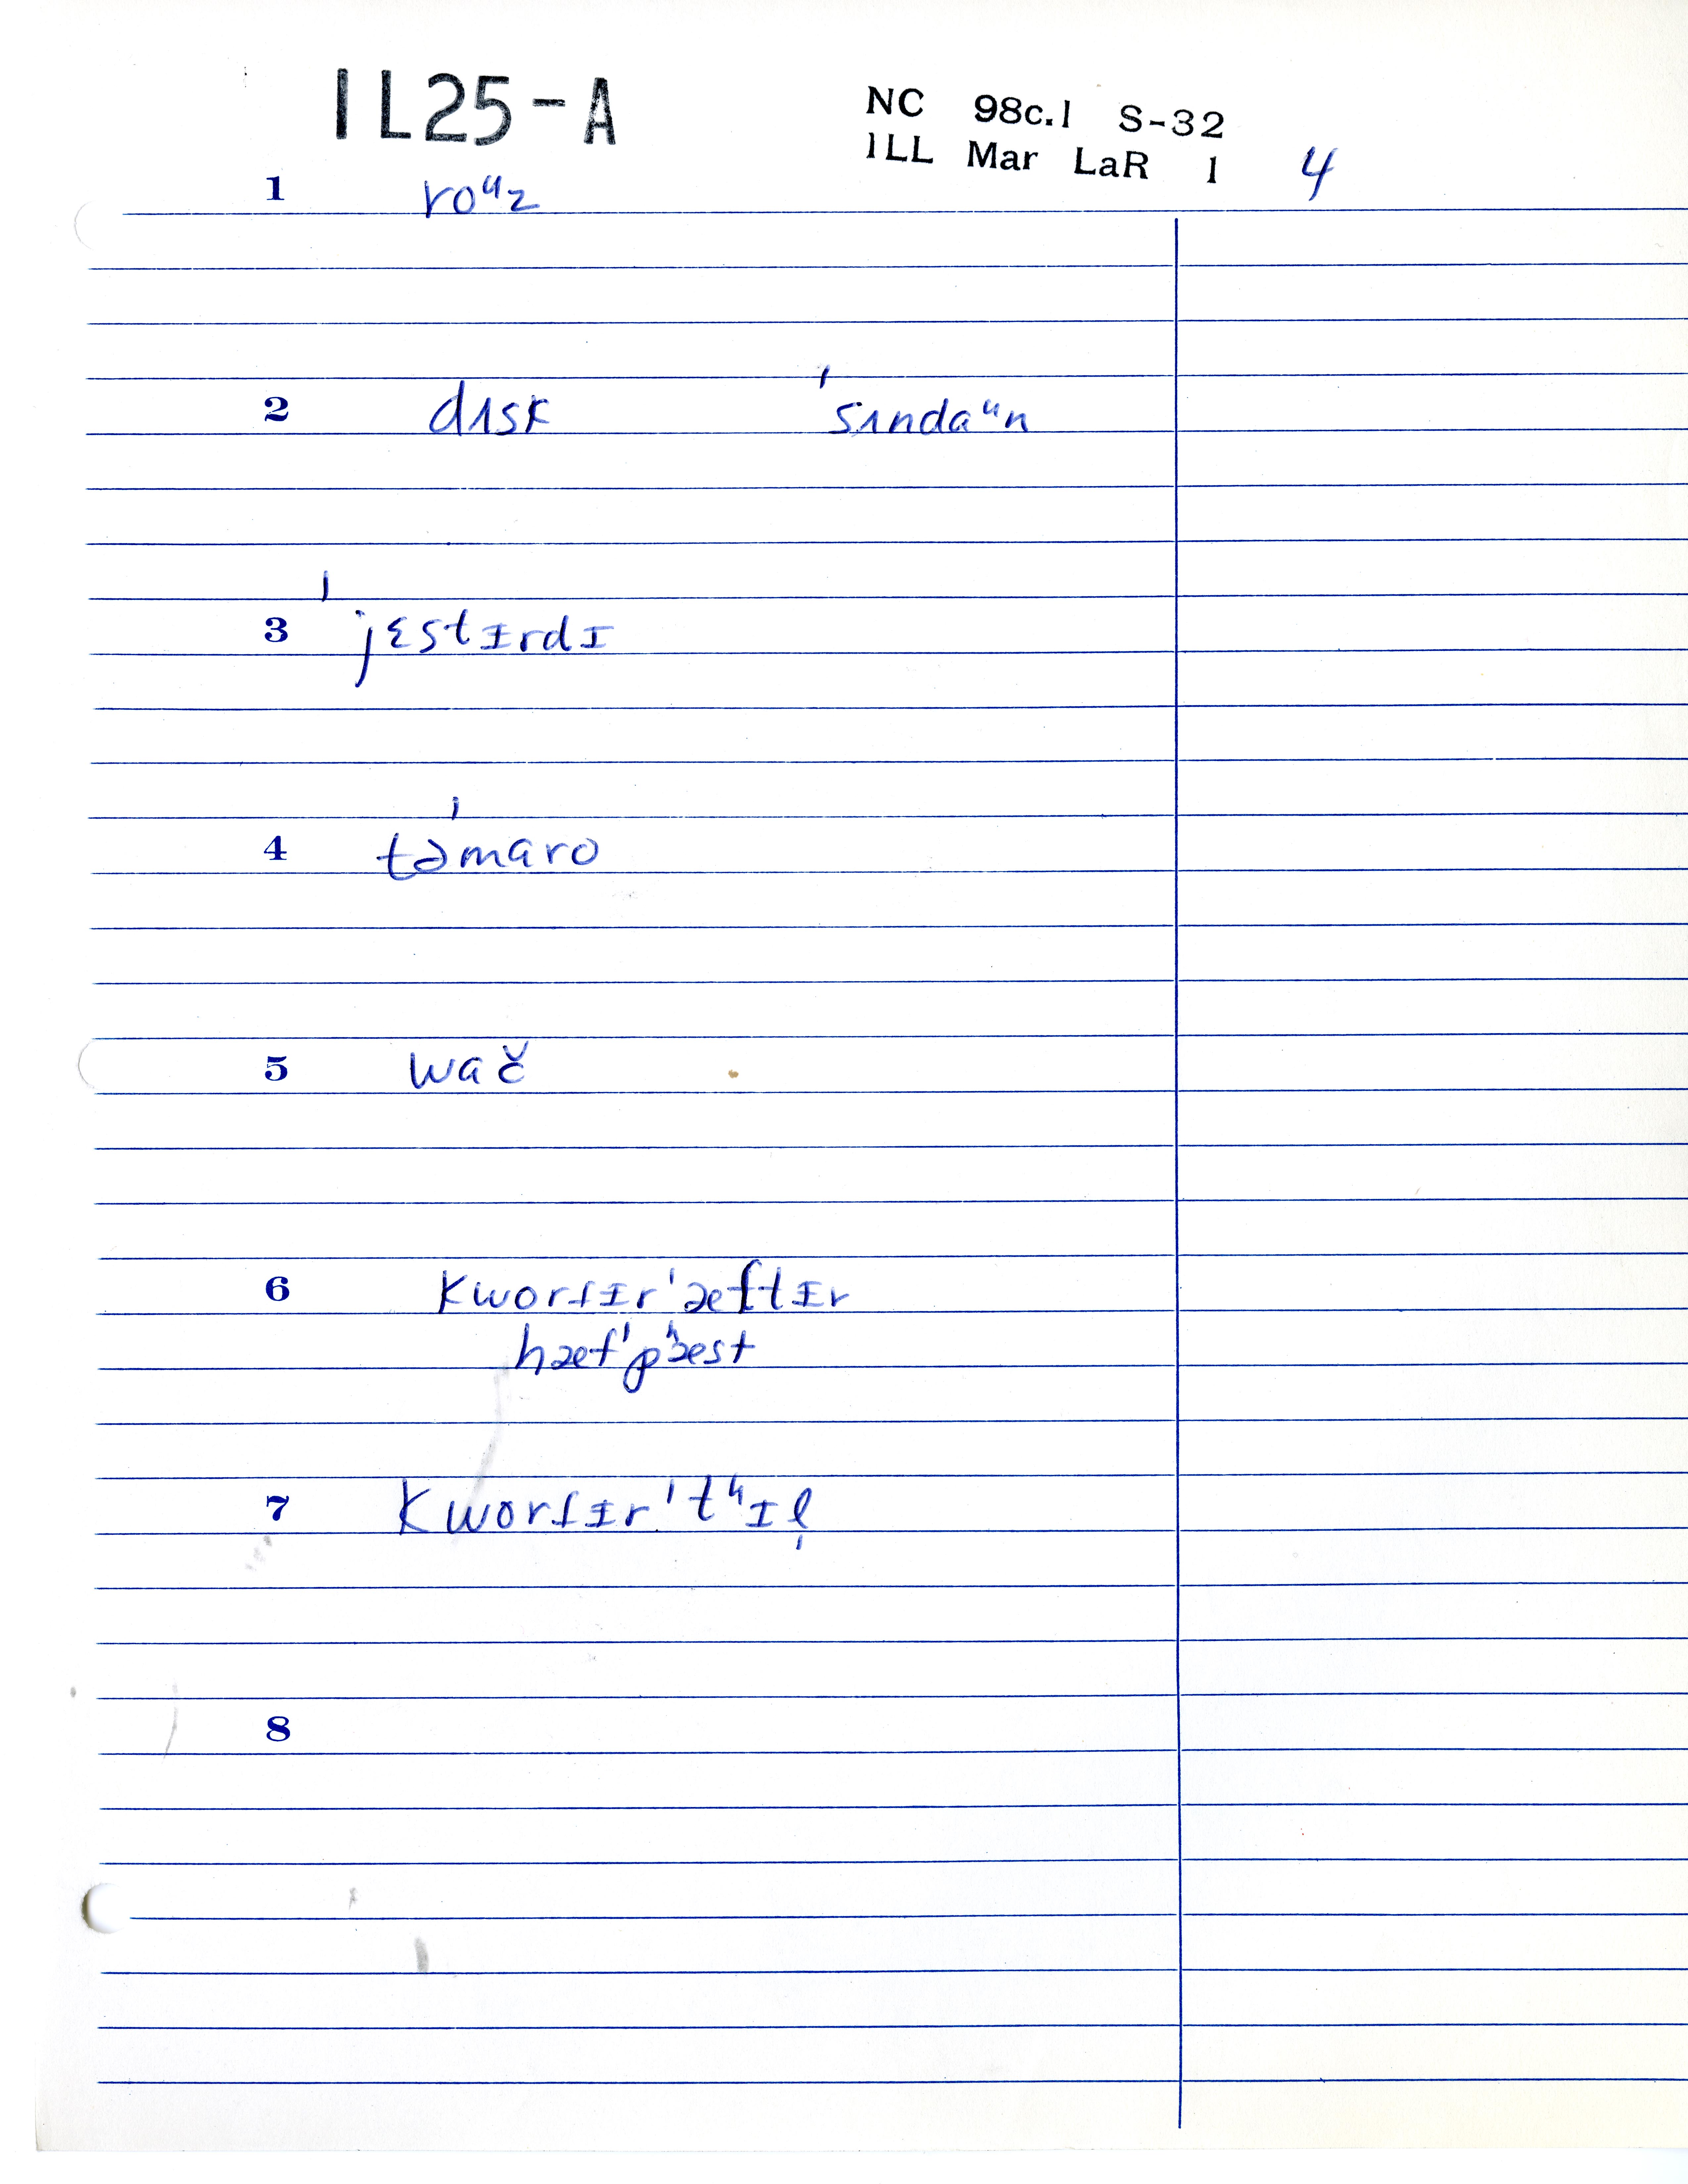 IL25-A
NC 98c.1 S-32
ILL Mar LaR 1 4
1 roᵘz
2 dʌsk ˈsʌndaᵘn
3 ˈjɛstɪrdɪ
4 təˈmaro
5 wač
6 kworɾɪr ˈæftɪr
hæf ˈpʰæst
7 kworɾɪr ˈtʰɪl̩
8